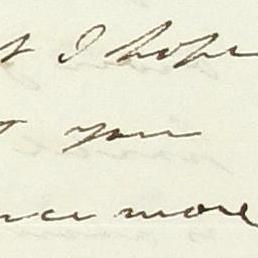 I hope
you
more